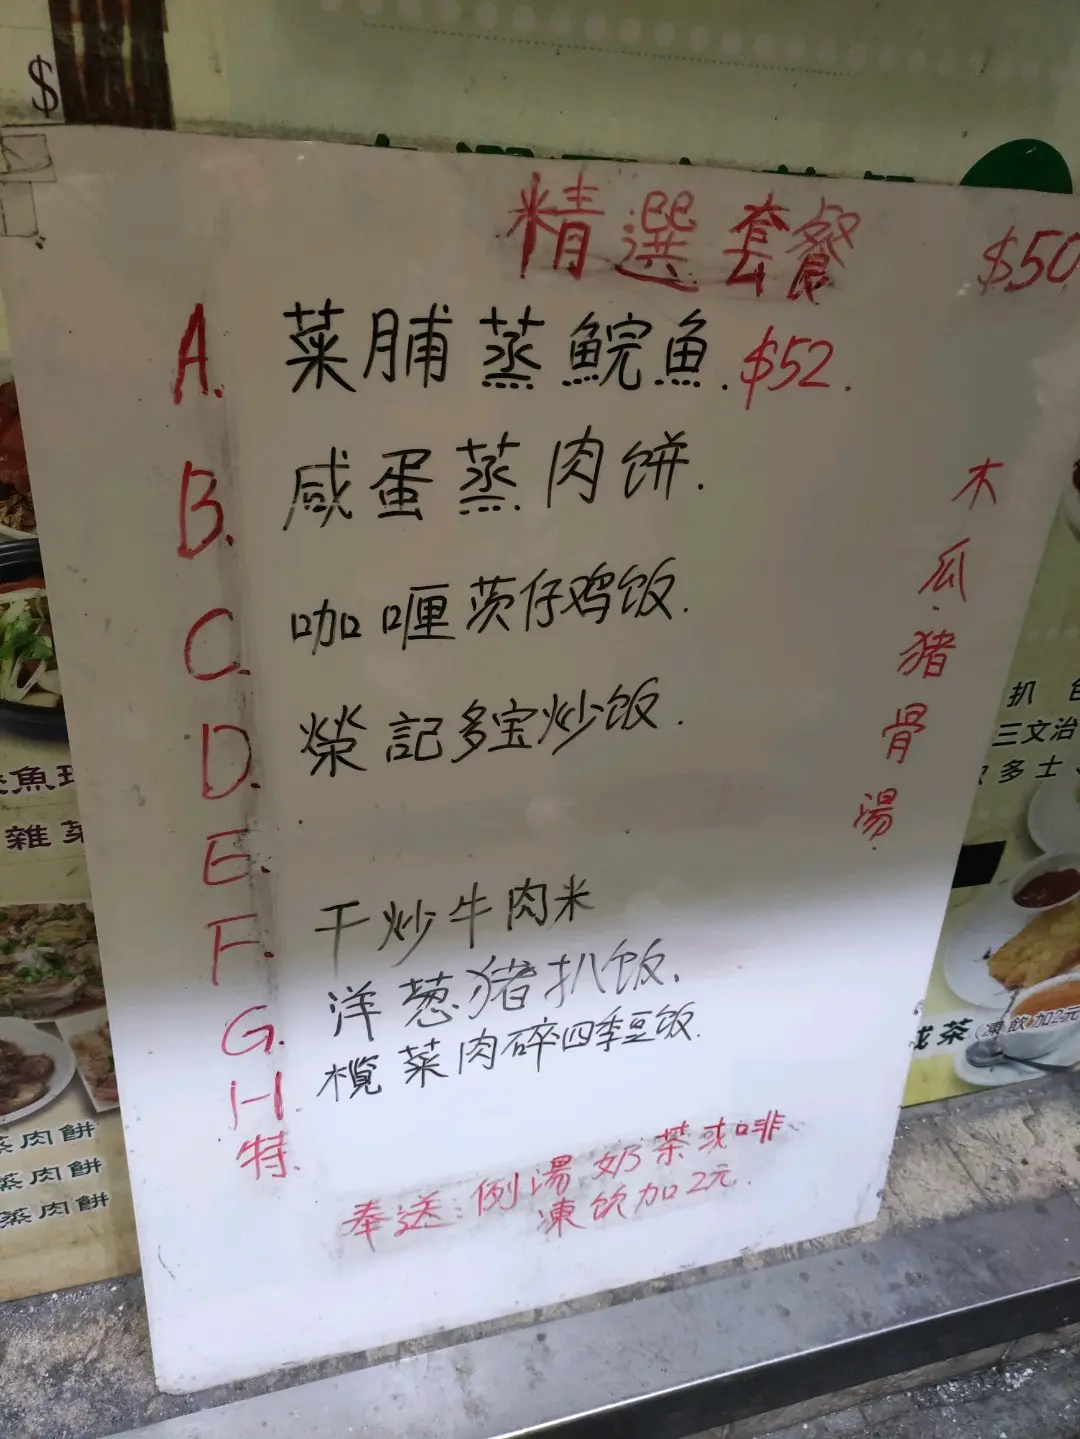 $
精選套餐 $50
A. 菜脯蒸鯇魚. $52.
B. 咸蛋蒸肉饼.
C. 咖喱茨仔鸡饭.
D. 榮記多宝炒饭.
E.
F. 干炒牛肉米
G. 洋葱猪扒饭.
H. 榄菜肉碎四季豆饭.
特.
奉送:例湯奶茶或啡
凍饮加2元.
木瓜猪骨湯
魚
雜菜
蒸肉餅
蒸肉餅
蒸肉餅
扒
三文治
多士
茶(凍飲加2元